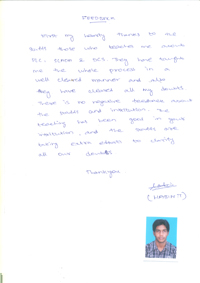 FEEDBACK
Give my hearty thanks to the
staff those who teaches me about
PLC, SCADA & DCS. They have taught
me the whole process in a
well cleared manner and also
they have cleared all my doubts
There is no negative feedback about
the faculty and institution. The
teaching has been good in your
institution, and the faculty are
taking extra efforts to clarify
all our doubts
Thankyou